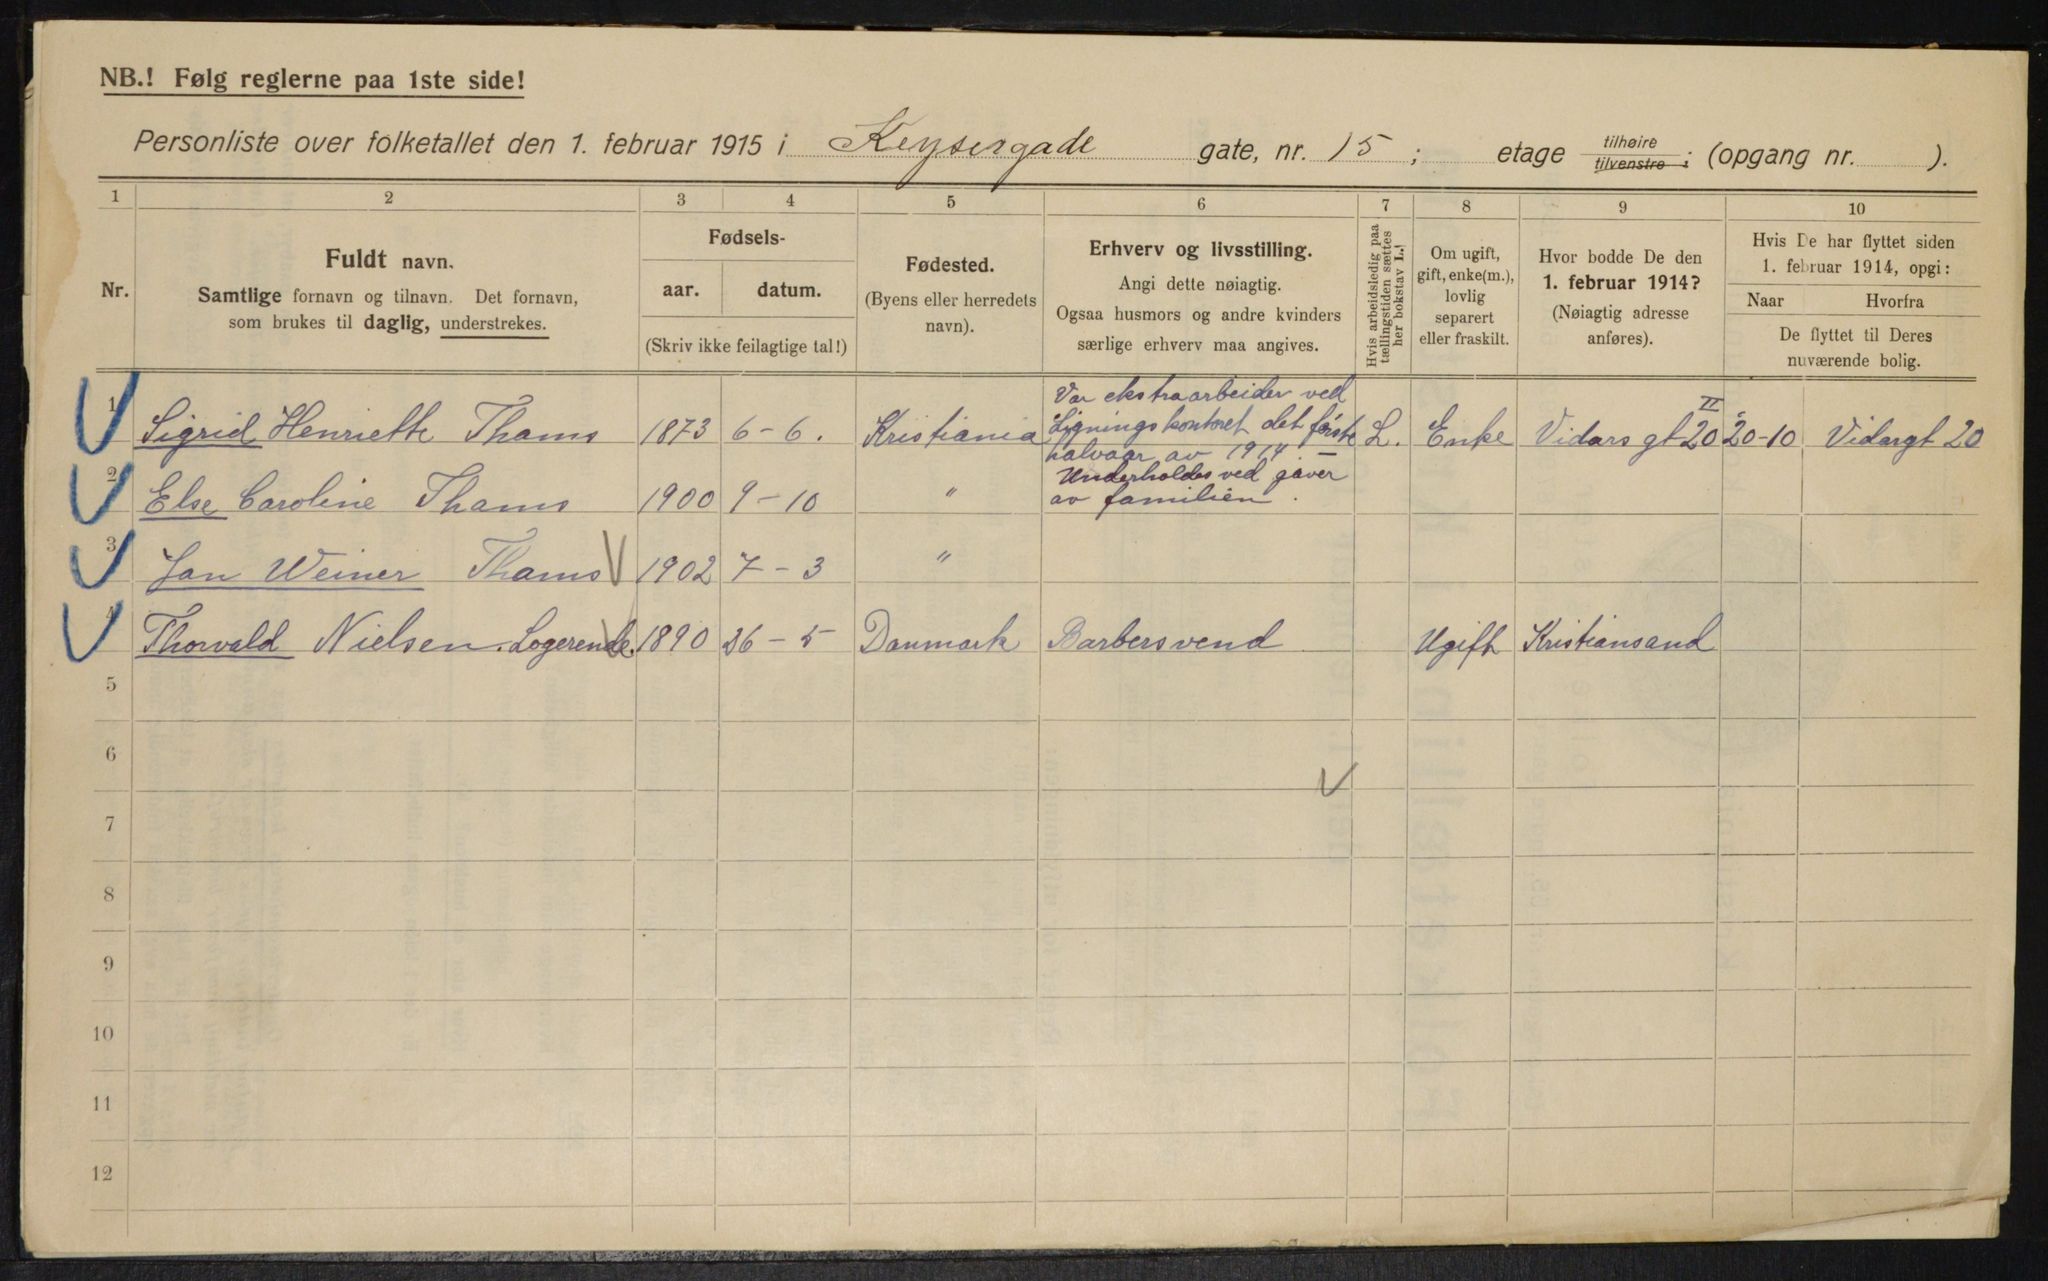 NB.! Følg reglerne paa 1ste side!
Personliste over folketallet den 1. februar 1915 i Keysergade gate, nr. 15 ; etage tilhøire tilvenstre ; (opgang nr. ).
1 2 3 4 5 6 7 8 9 10
Nr.
Fuldt navn.
Samtlige fornavn og tilnavn. Det fornavn,
som brukes til daglig, understrekes.
Fødsels-
aar. datum.
(Skriv ikke feilagtige tal!)
Fødested.
(Byens eller herredets
navn).
Erhverv og livsstilling.
Angi dette nøiagtig.
Ogsaa husmors og andre kvinders
særlige erhverv maa angives.
Hvis arbeidsledig paa
tællingstiden sættes
her bokstav L.!
Om ugift,
gift, enke(m.),
lovlig
separert
eller fraskilt.
Hvor bodde De den
1. februar 1914?
(Nøiagtig adresse
anføres).
Hvis De har flyttet siden
1. februar 1914, opgi:
Naar Hvorfra
De flyttet til Deres
nuværende bolig.
1 Sigrid Henriette Thams 1873 6-6. Kristiania
Var ekstraarbeider ved
Ligningskontoret det første
halvaar av 1914 –
L. Enke Vidars gt 20 II 20-10 Vidargt 20
2 Else Caroline Thams 1900 9-10 "
Underholdes ved gaver
av familien.
3 Jan Weiner Thams 1902 7-3 "
4 Thorvald Nielsen. Logerende. 1890 26-5 Danmark Barbersvend Ugift Kristiansand
5
6
7
8
9
10
11
12